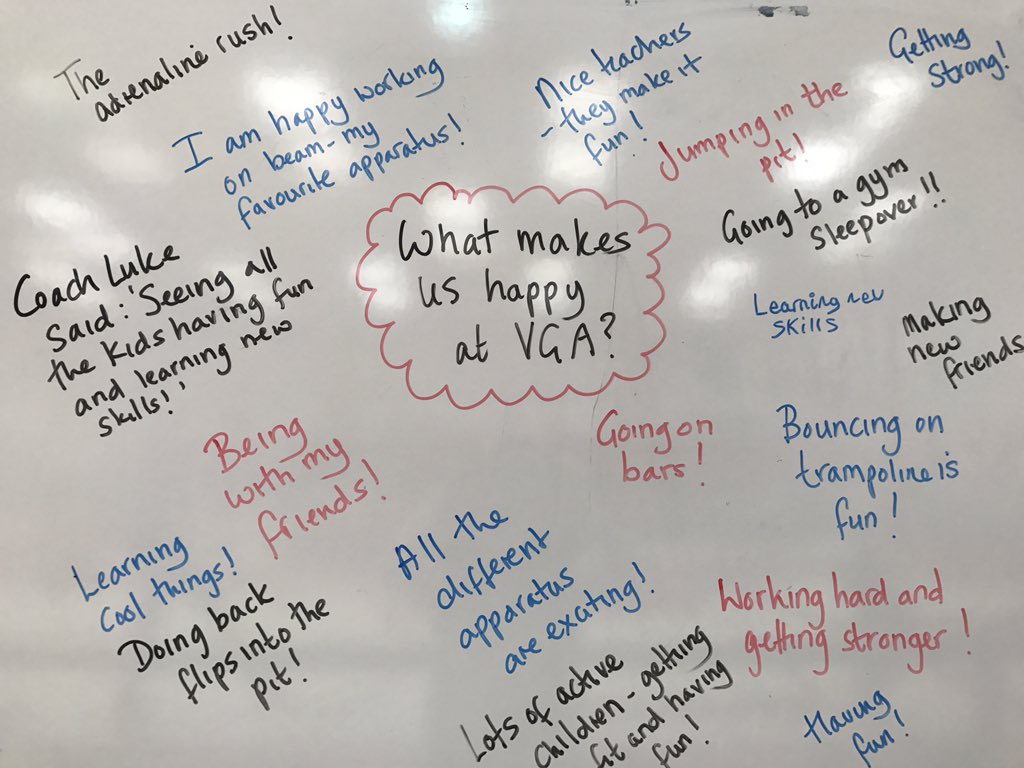 The
adrenaline rush!
I am happy working
on beam - my
favourite apparatus!
Nice teachers
- they make it
fun!
Getting
Strong!
Jumping in the
pit!
Going to a gym
Sleepover!!
What makes
us happy
at VGA?
Coach Luke
said: 'Seeing all
the kids having fun
and learning new
skills!'
Learning new
SKills
Making
new
friends
Being
with my
friends!
Going on
bars!
Bouncing on
trampoline is
fun!
Learning
cool things!
Doing back
flips into the
pit!
All the
different
apparatus
are exciting!
Working hard and
getting stronger!
Lots of active
children - getting
fit and having
fun!
Having
fun!